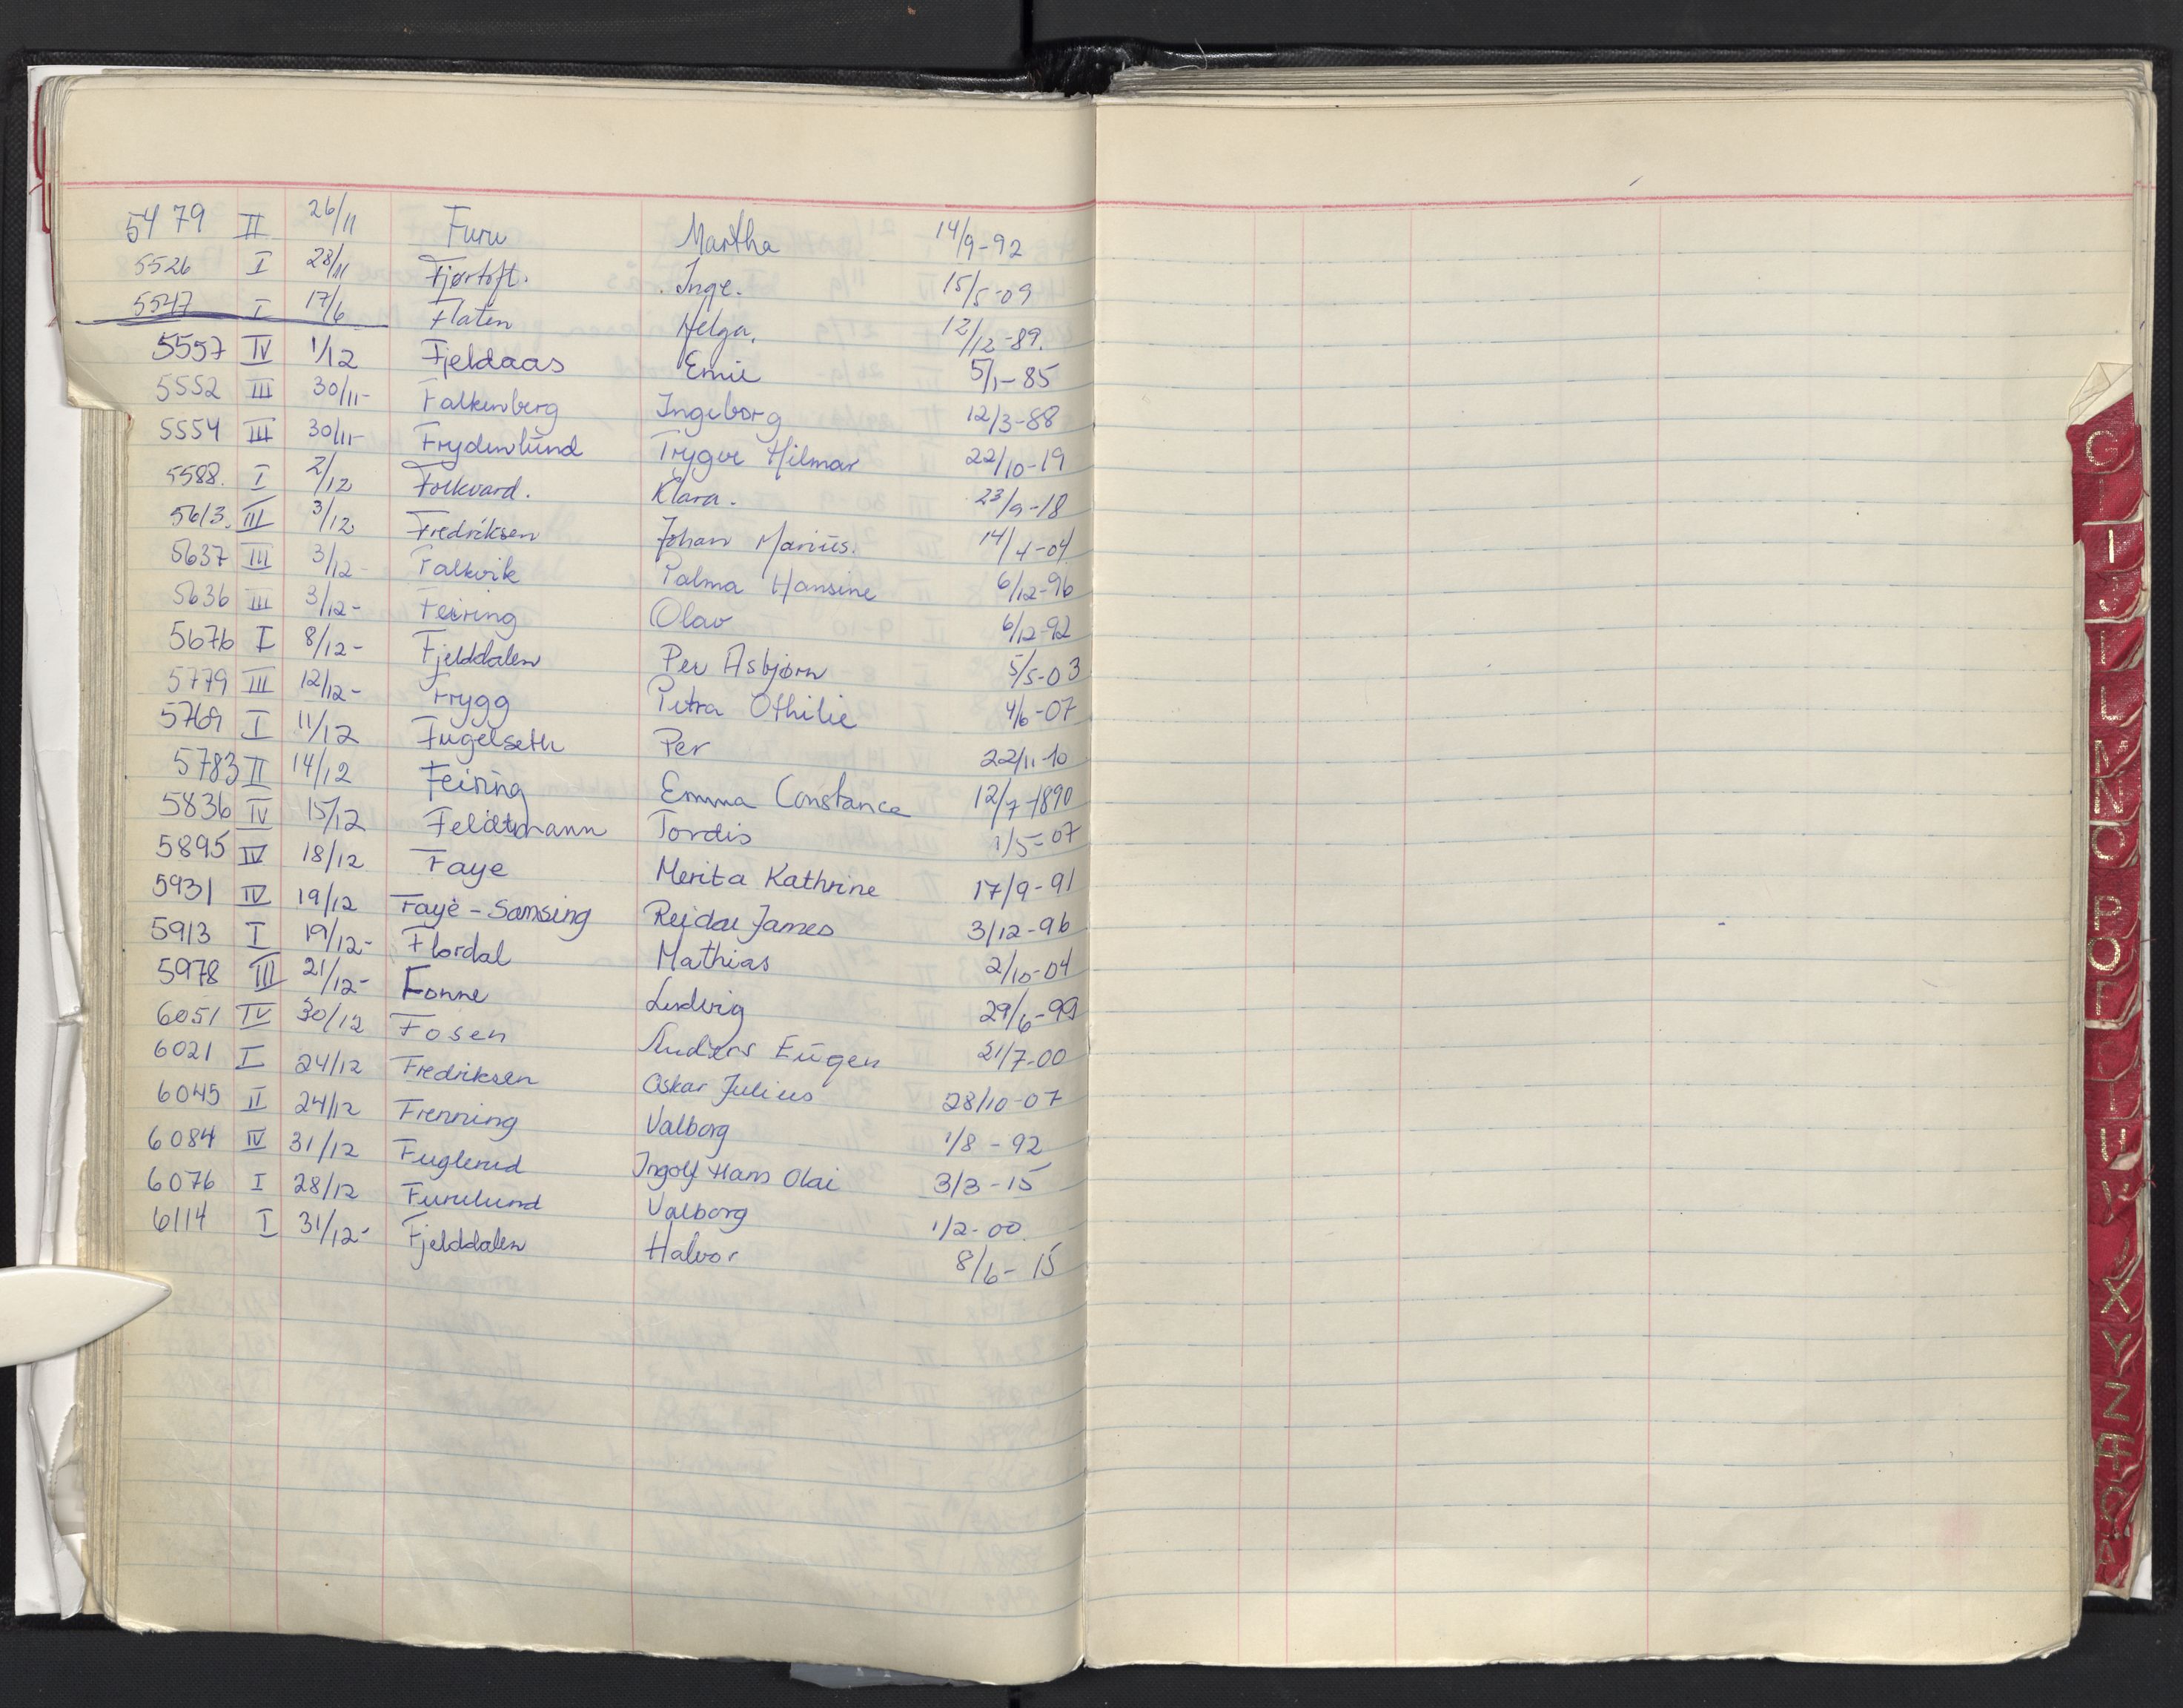 5479 II 26/11 Furu Martha 14/9-92
5526 I 28/11 Fjørtoft. Inge. 15/5-09
5547 I 17/6 Flaten Helga. 12/12-89.
5557 IV 1/12 Fjeldaas Emil 5/1-85
5552 III 30/11- Falkenberg Ingeborg 12/3-88
5554 III 30/11- Frydenlund Trygve Hilmar 22/10-19
5588. I 2/12 Folkvard. Klara. 23/9-18
5613. III 3/12 Fredriksen Johan Marius. 14/4-04
5637 III 3/12- Falkvik Palma Hansine 6/12-96
5636 III 3/12- Feiring Olav 6/12-92
5676 I 8/12- Fjelddalen Per Asbjørn 5/5-03
5779 III 12/12- Frygg Petra Othilie 4/6-07
5769 I 11/12 Fugelseth Per 22/11-10
5783 II 14/12 Feiring Emma Constance 12/7-1890
5836 IV 15/12 Feldtmann Tordis 1/5-07
5895 IV 18/12 Faye Merita Kathrine 17/9-91
5931 IV 19/12 Faye-Samsing Reidar James 3/12-96
5913 I 19/12- Flordal Mathias 2/10-04
5978 III 21/12- Fonne Ludvig 29/6-99
6051 IV 30/12 Fosen Anders Eugen 21/7-00
6021 I 24/12 Fredriksen Oskar Julius 28/10-07
6045 II 24/12 Frenning Valborg 1/8-92
6084 IV 31/12 Fuglerud Ingolf Hans Olai 3/3-15
6076 I 28/12 Furulund Valborg 1/2-00.
6114 I 31/12- Fjelddalen Halvor 8/6-15
G
I
J
L
N
O
P
V
X
Y
Z